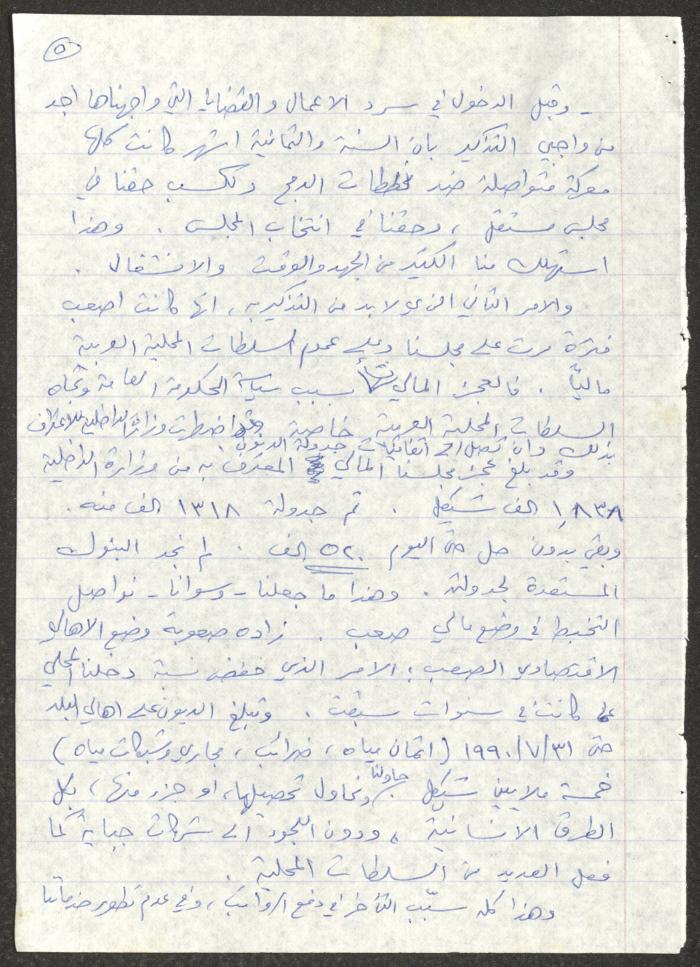 ٥
- وقبل الدخول في سرد الاعمال والقضايا التي واجهناها اجد
من واجبي التذكير بان السنة والثمانية اشهر كانت كلها
معركة متواصلة ضد مخططات الدمج ولكسب حقنا في
مجلس مستقل ، وحقنا في انتخاب المجلس . وهذا
استهلك منا الكثير من الجهد والوقت والانشغال .
والامر الثاني الذي لا بد من التذكير به ، انها كانت اصعب
فترة مرت على مجلسنا وعلى عموم السلطات المحلية العربية
مالياً . فالعجز المالي نشأ بسبب سياسة الحكومة العامة وتجاه
السلطات المحلية العربية خاصة وقد اضطرت وزارة الداخلية للاعتراف
بذلك وان تصل الى اتفاقيات جدولة الديون
وقد بلغ عجز مجلسنا المالي المعترف به من وزارة الداخلية
١,٨٣٨ الف شيكل . تم جدولة ١٣١٨ الف منه .
وبقي بدون حل حتى اليوم ٥٢٠ الف . لم نجد البنوك
المستعدة لجدولته . وهذا ما جعلنا - وسوانا - نواصل
التخبط في وضع مالي صعب . زاده صعوبة وضع الاهالي
الاقتصادي الصعب ؛ الامر الذي خفض نسبة دخلنا المحلي
عما كانت في سنوات سبقت . وتبلغ الديون على اهالي البلد
حتى ١٩٩٠/٧/٣١ (اثمان مياه ، ضرائب ، مجاري وشبكات مياه)
خمسة ملايين شيكل حاولنا ونحاول تحصيلها، او جزء منها، بكل
الطرق الانسانية ، ودون اللجوء الى شركات جباية كما
فعل العديد من السلطات المحلية .
وهذا كله سبّب التأخر في دفع الرواتب ، وفي عدم تطوير خدماتنا